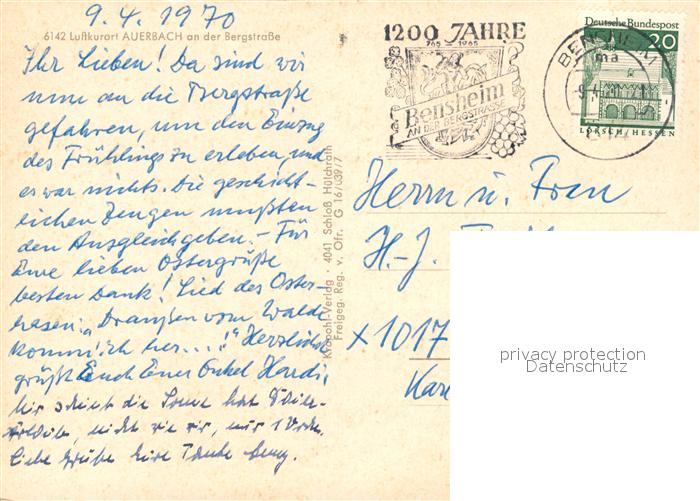 9. 4. 1970
6142 Luftkurort AUERBACH an der Bergstraße
Ihr Lieben! Da sind wir
nun an die Bergstraße
gefahren, um den Einzug
des Frühlings zu erleben, und
es war nichts. Die geschicht-
lichen Zeugen mußten
den Ausgleich geben. – Für
Eure lieben Ostergrüße
besten Dank! Lied des Oster-
hasen: „Draußen vom Walde
komm' ich her...!" Herzlichst
grüßt Euch Euer Onkel Hardi,
Mir scheint die Sonne hat
nicht wie wir, nur 1 Woche.
Liebe Grüße Eure Tante
Krapohl-Verlag · 4041 Schloß Hülchrath
Freigeg. Reg. v. Ofr. G 16/039/7
1200 JAHRE
765 – 1965
Bensheim
AN DER BERGSTRASSE
Deutsche Bundespost
20
LORSCH/HESSEN
BENSHEIM
ma
Herrn u. Frau
H.-J.
x 1017
Kar
privacy protection
Datenschutz